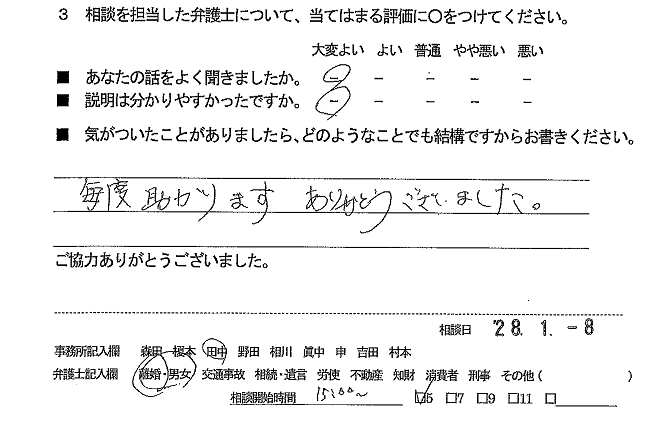 3 相談を担当した弁護士について、当てはまる評価に○をつけてください。
大変よい よい 普通 やや悪い 悪い
■ あなたの話をよく聞きましたか。 － － － － －
■ 説明は分かりやすかったですか。 － － － － －
■ 気がついたことがありましたら、どのようなことでも結構ですからお書きください。
毎度助かります ありがとうございました。
ご協力ありがとうございました。
相談日 '28. 1. -8
事務所記入欄 森田 榎本 田中 野田 相川 眞中 申 吉田 村本
弁護士記入欄 離婚・男女 交通事故 相続・遺言 労使 不動産 知財 消費者 刑事 その他( )
相談開始時間 15:00～ □5 □7 □9 □11 □